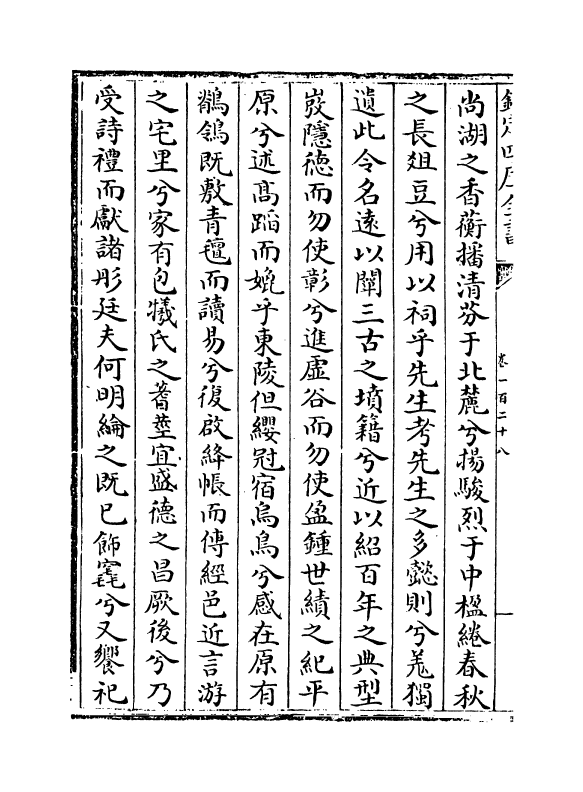 欽定四庫全書
卷一百二十八
尚湖之香蘅播清芬于北麓兮揚駿烈于中楹綣春秋
之長俎豆兮用以祠乎先生考先生之多懿則兮羌獨
遺此令名遠以闡三古之墳籍兮近以紹百年之典型
𤼵隱徳而勿使彰兮進虛谷而勿使盈鍾世績之紀平
原兮述髙蹈而婏乎東陵但纓冠宿烏鳥兮感在原有
鶺鴒既敷青氊而讀易兮復啟絳帳而傳經邑近言游
之宅里兮家有包犧氏之蓍莖宜盛徳之昌厥後兮乃
受詩禮而獻諸彤廷夫何明綸之既已飾窀兮又饗祀